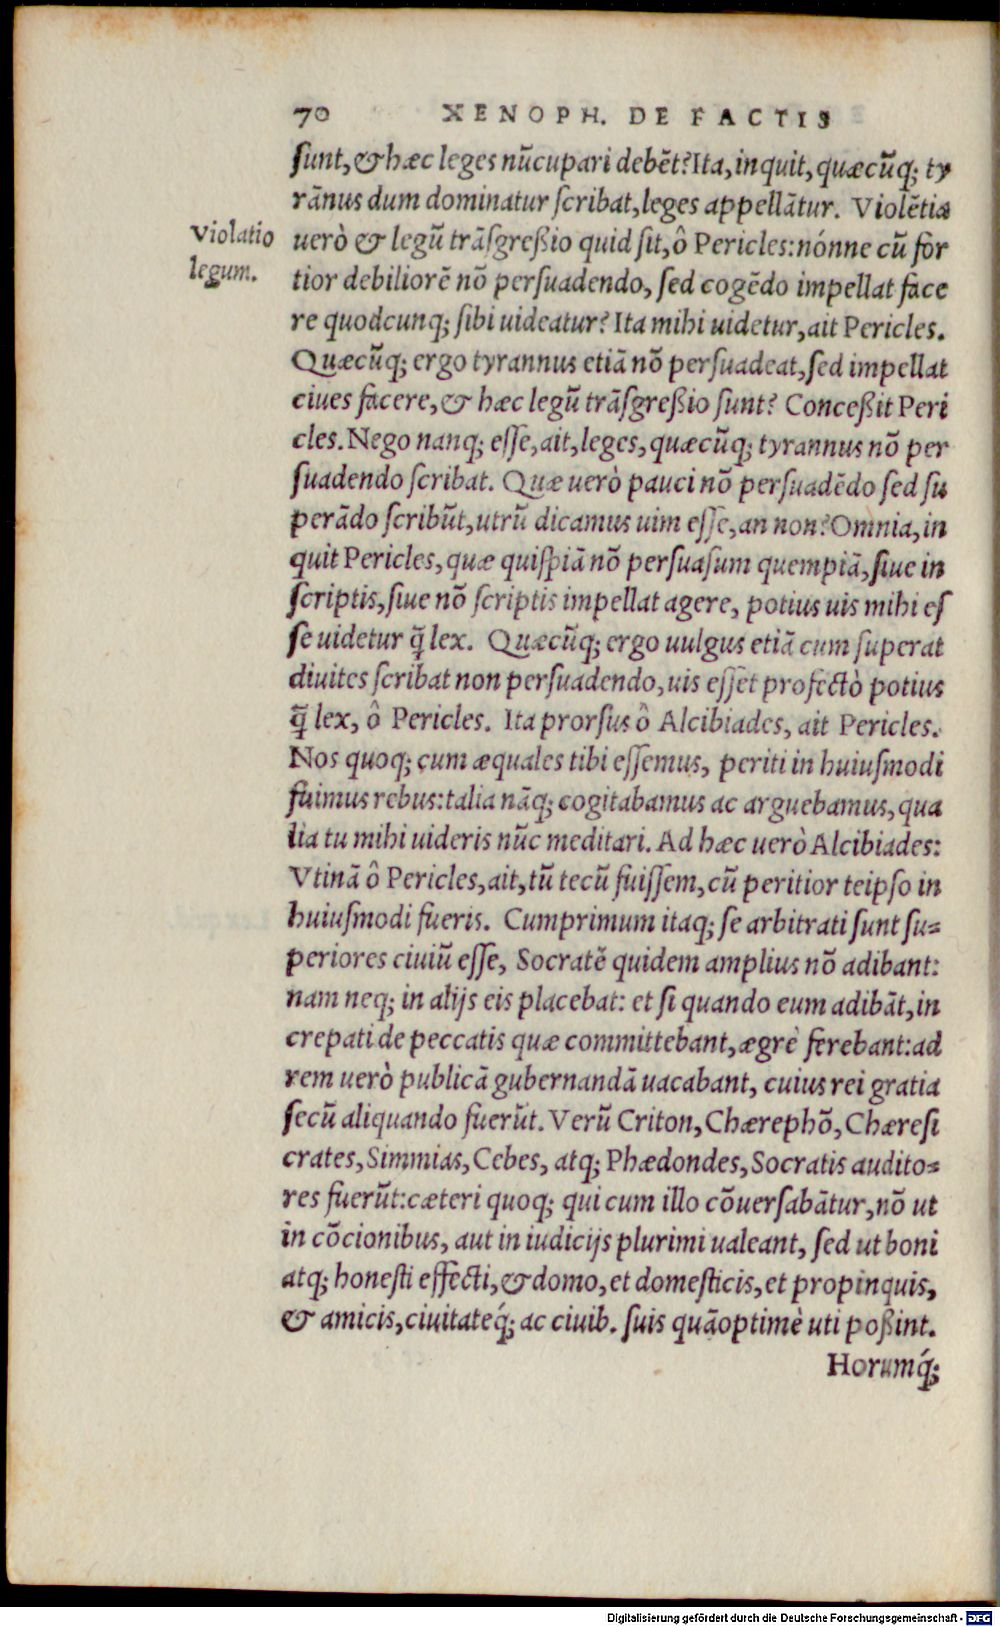 70 XENOPH. DE FACTIS
sunt, & hæc leges nũcupari debẽt? Ita, inquit, quæcũq; ty
rãnus dum dominatur scribat, leges appellãtur. Violẽtia
violatio
legum.
uerò & legũ trãsgreßio quid sit, ô Pericles: nónne cũ for
tior debiliorẽ nõ persuadendo, sed cogẽdo impellat face
re quodcunq; sibi uideatur? Ita mihi uidetur, ait Pericles.
Quæcũq; ergo tyrannus etiã nõ persuadeat, sed impellat
ciues facere, & hæc legũ trãsgreßio sunt? Conceßit Peri
cles. Nego nanq; esse, ait, leges, quæcũq; tyrannus nõ per
suadendo scribat. Quæ uerò pauci nõ persuadẽdo sed su
perãdo scribũt, utrũ dicamus uim esse, an non? Omnia, in
quit Pericles, quæ quispiã nõ persuasum quempiã, siue in
scriptis, siue nõ scriptis impellat agere, potius uis mihi es
se uidetur q̃ lex. Quæcũq; ergo uulgus etiã cum superat
diuites scribat non persuadendo, uis esset profectò potius
q̃ lex, ô Pericles. Ita prorsus ô Alcibiades, ait Pericles.
Nos quoq; cum æquales tibi essemus, periti in huiusmodi
fuimus rebus: talia nãq; cogitabamus ac arguebamus, qua
lia tu mihi uideris nũc meditari. Ad hæc uerò Alcibiades:
Vtinã ô Pericles, ait, tũ tecũ fuissem, cũ peritior teipso in
huiusmodi fueris. Cumprimum itaq; se arbitrati sunt su=
periores ciuiũ esse, Socratẽ quidem amplius nõ adibant:
nam neq; in alijs eis placebat: et si quando eum adibãt, in
crepati de peccatis quæ committebant, ægrè ferebant: ad
rem uerò publicã gubernandã uacabant, cuius rei gratia
secũ aliquando fuerũt. Verũ Criton, Chærephõ, Chæresi
crates, Simmias, Cebes, atq; Phædondes, Socratis audito=
res fuerũt: cæteri quoq; qui cum illo cõuersabãtur, nõ ut
in cõcionibus, aut in iudicijs plurimi ualeant, sed ut boni
atq; honesti effecti, & domo, et domesticis, et propinquis,
& amicis, ciuitateq́; ac ciuib. suis quãoptimè uti poßint.
Horumq́;
Digitalisierung gefördert durch die Deutsche Forschungsgemeinschaft - DFG